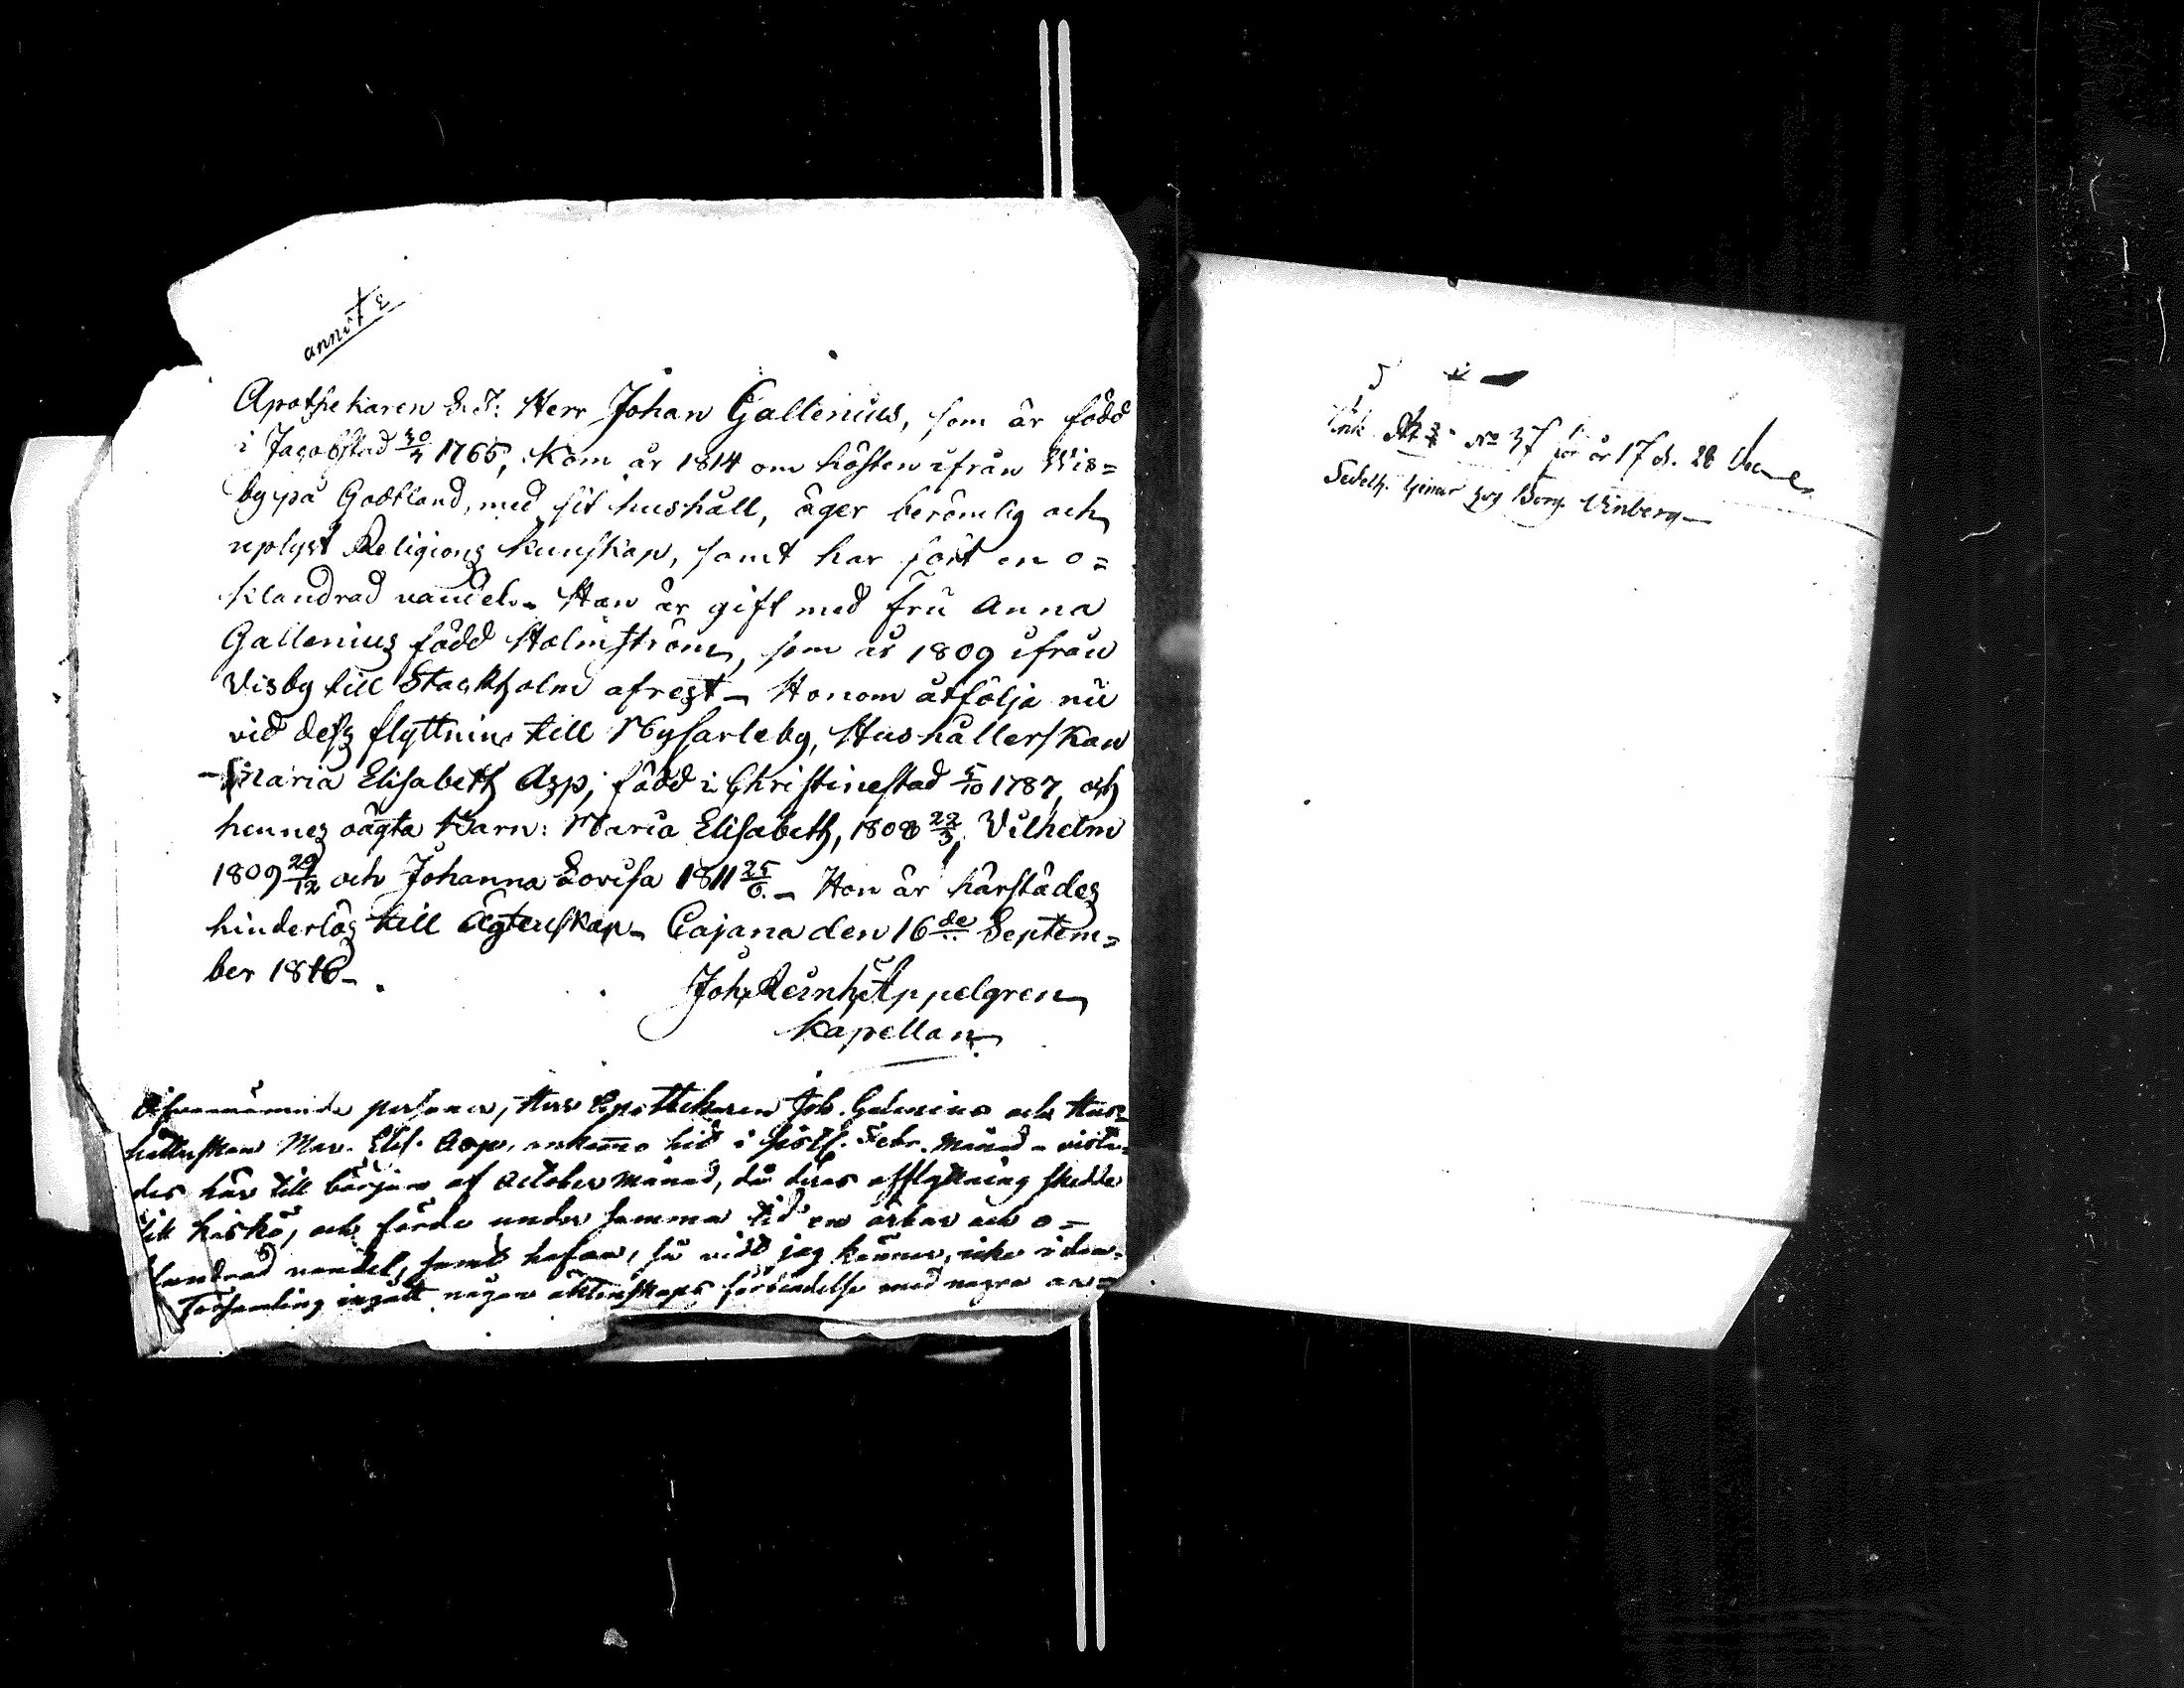 annot:
Apothekaren S. T. Herr Johan Gallenius, som är född
i Jacobstad 30/4 1765, kom år 1814 om hösten ifrån Wis=
by på Gottland, med sit hushåll, äger berömlig och
uplyst Religions kunskap, samt har fört en o=
klandrad vandel. Han är gift med Fru Anna
Gallenius född Holmström, som år 1809 ifrån
Visby till Stockholm afrest. Honom åtfölja nu
vid dess flyttning till Nycarleby, Hushållerskan
Maria Elisabeth Asp, född i Christinestad 5/10 1787, och
hennes oägta Barn: Maria Elisabeth, 1808 22/3, Vilhelm
1809 29/12 och Johanna Lovisa 1811 25/6. Hon är härstädes
hinderlös till Ägtenskap. Cajana den 16de Septem=
ber 1816.
Joh. Reinh. Appelgren
Kapellan
Ofvannämnde personer, Herr Apothekaren Joh. Galenius och Hus=
hållerskan Mar. Elis. Asp, ankommo hid i sistl. Febr. månad - vista=
des här till början af October månad, då deras afflyttning skedde
till Kaskö, och förde under samma tid en ärbar och o=
klandrad vandel, samt hafva, så vidt jag känner, icke i denna
Församling ingått någon äktenskaps förbindelse med några an=
No 37 för år 17 d. 28
Vinberg